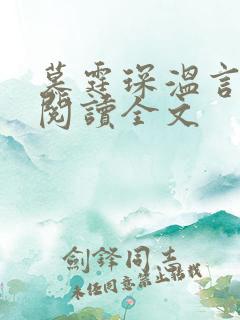 墓霆琛溫言
閱讀全文
劍鋒同主
未经同意禁止转载